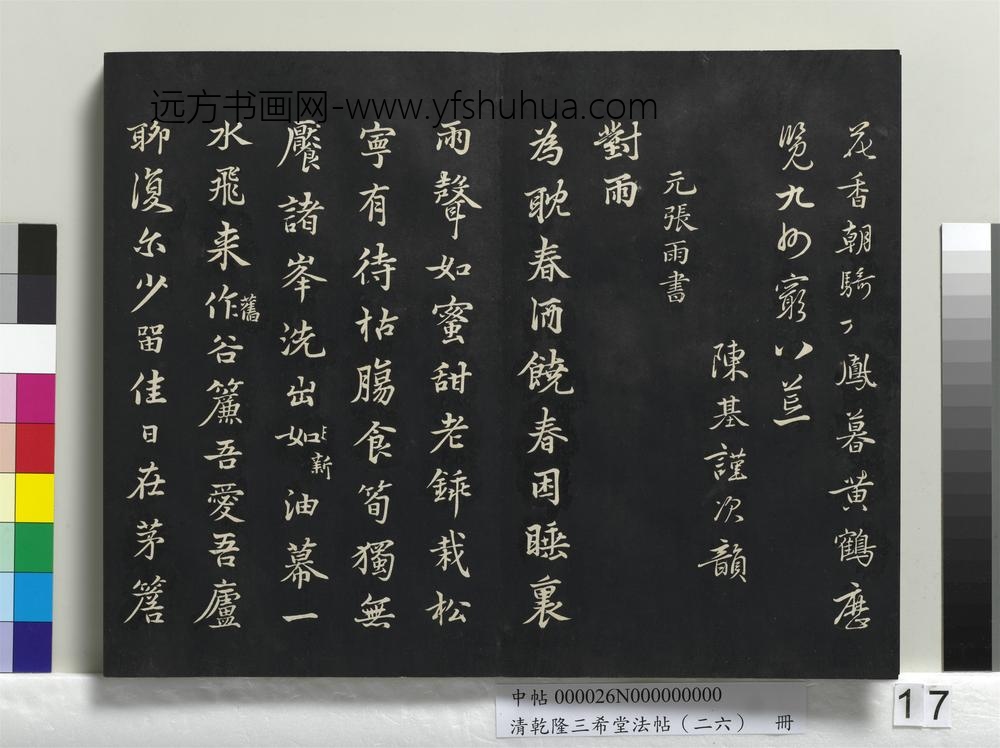 远方书画网-www.yfshuhua.com
花香朝騎丁鳳暮黃鶴歷
覽九州窮八荒
陳基謹次韻
元張雨書
對雨
為耽春酒饒春困睡裏
雨聲如蜜甜老鋒栽松
寧有待枯腸食筍獨無
饜諸峯洗出如新油幕一
水飛来作舊谷簾吾愛吾廬
聊復尓少留佳日在茅簷
中帖 000026N000000000
清乾隆三希堂法帖（二六） 冊
17